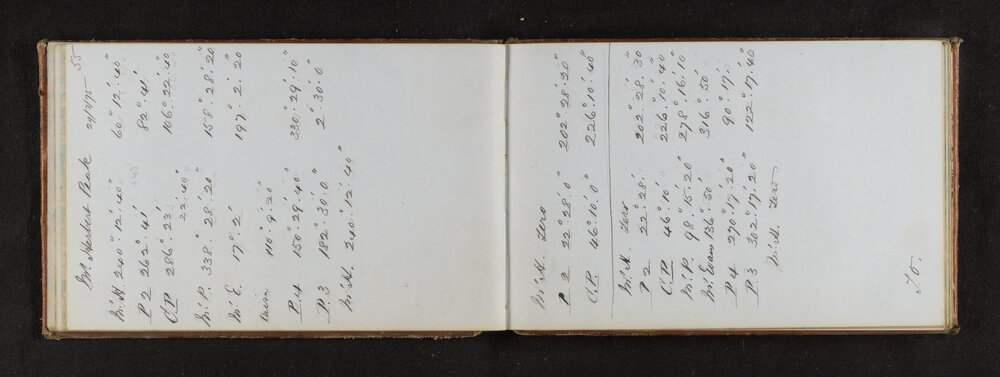 55
Mt Herbert Peak 29/3/75
Mt H. 240°. 12'. 40" 60°. 12'. 40"
P. 2 262°. 41' 82°. 41'
C.P 286°. 23' 106°. 22'. 40"
22'. 40"
Mt P. 338°. 28'. 20" 158°. 28'. 20"
Mt E. 17°. 2' 197°. 2'. 20"
Cairn 110°. 9'. 20"
P. 4 150°. 29'. 40" 330°. 29'. 10"
P. 3 182°. 30'. 0" 2°. 30'. 0"
Mt H. 240°. 12'. 40"
Mt H. Zero
P 2 22°. 28'. 0" 202°. 28'. 20"
C.P. 46°. 10'. 0" 226°. 10'. 40"
Mt H. Zero
P 2 22°. 28'. 202°. 28'. 30
C.P 46°. 10' 226°. 10'. 40"
Mt P. 98°. 15'. 20" 278°. 16'. 10"
Mt Evans 136°. 50' 316°. 50'
P. 4 270°. 17'. 20" 90°. 17'.
P. 3 302°. 17'. 20" 122°. 17'. 40"
Mt H. Zero